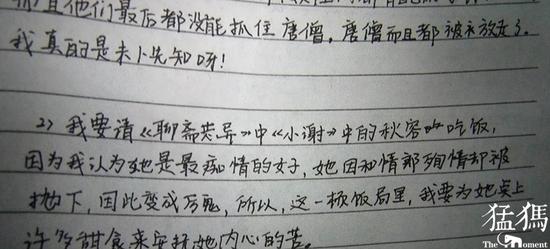 且他们最后都没能抓住唐僧,唐僧而且都被永放走了.
我真的是未卜先知呀!
2) 我要请《聊斋志异》中《小谢》中的秋容吃饭,
因为我认为她是最痴情的女子,她因和情郎殉情却被
抛下,因此变成厉鬼,所以,这一顿饭局里,我要为她桌上
许多甜食来安抚她内心的苦。
猛犸
The Moment